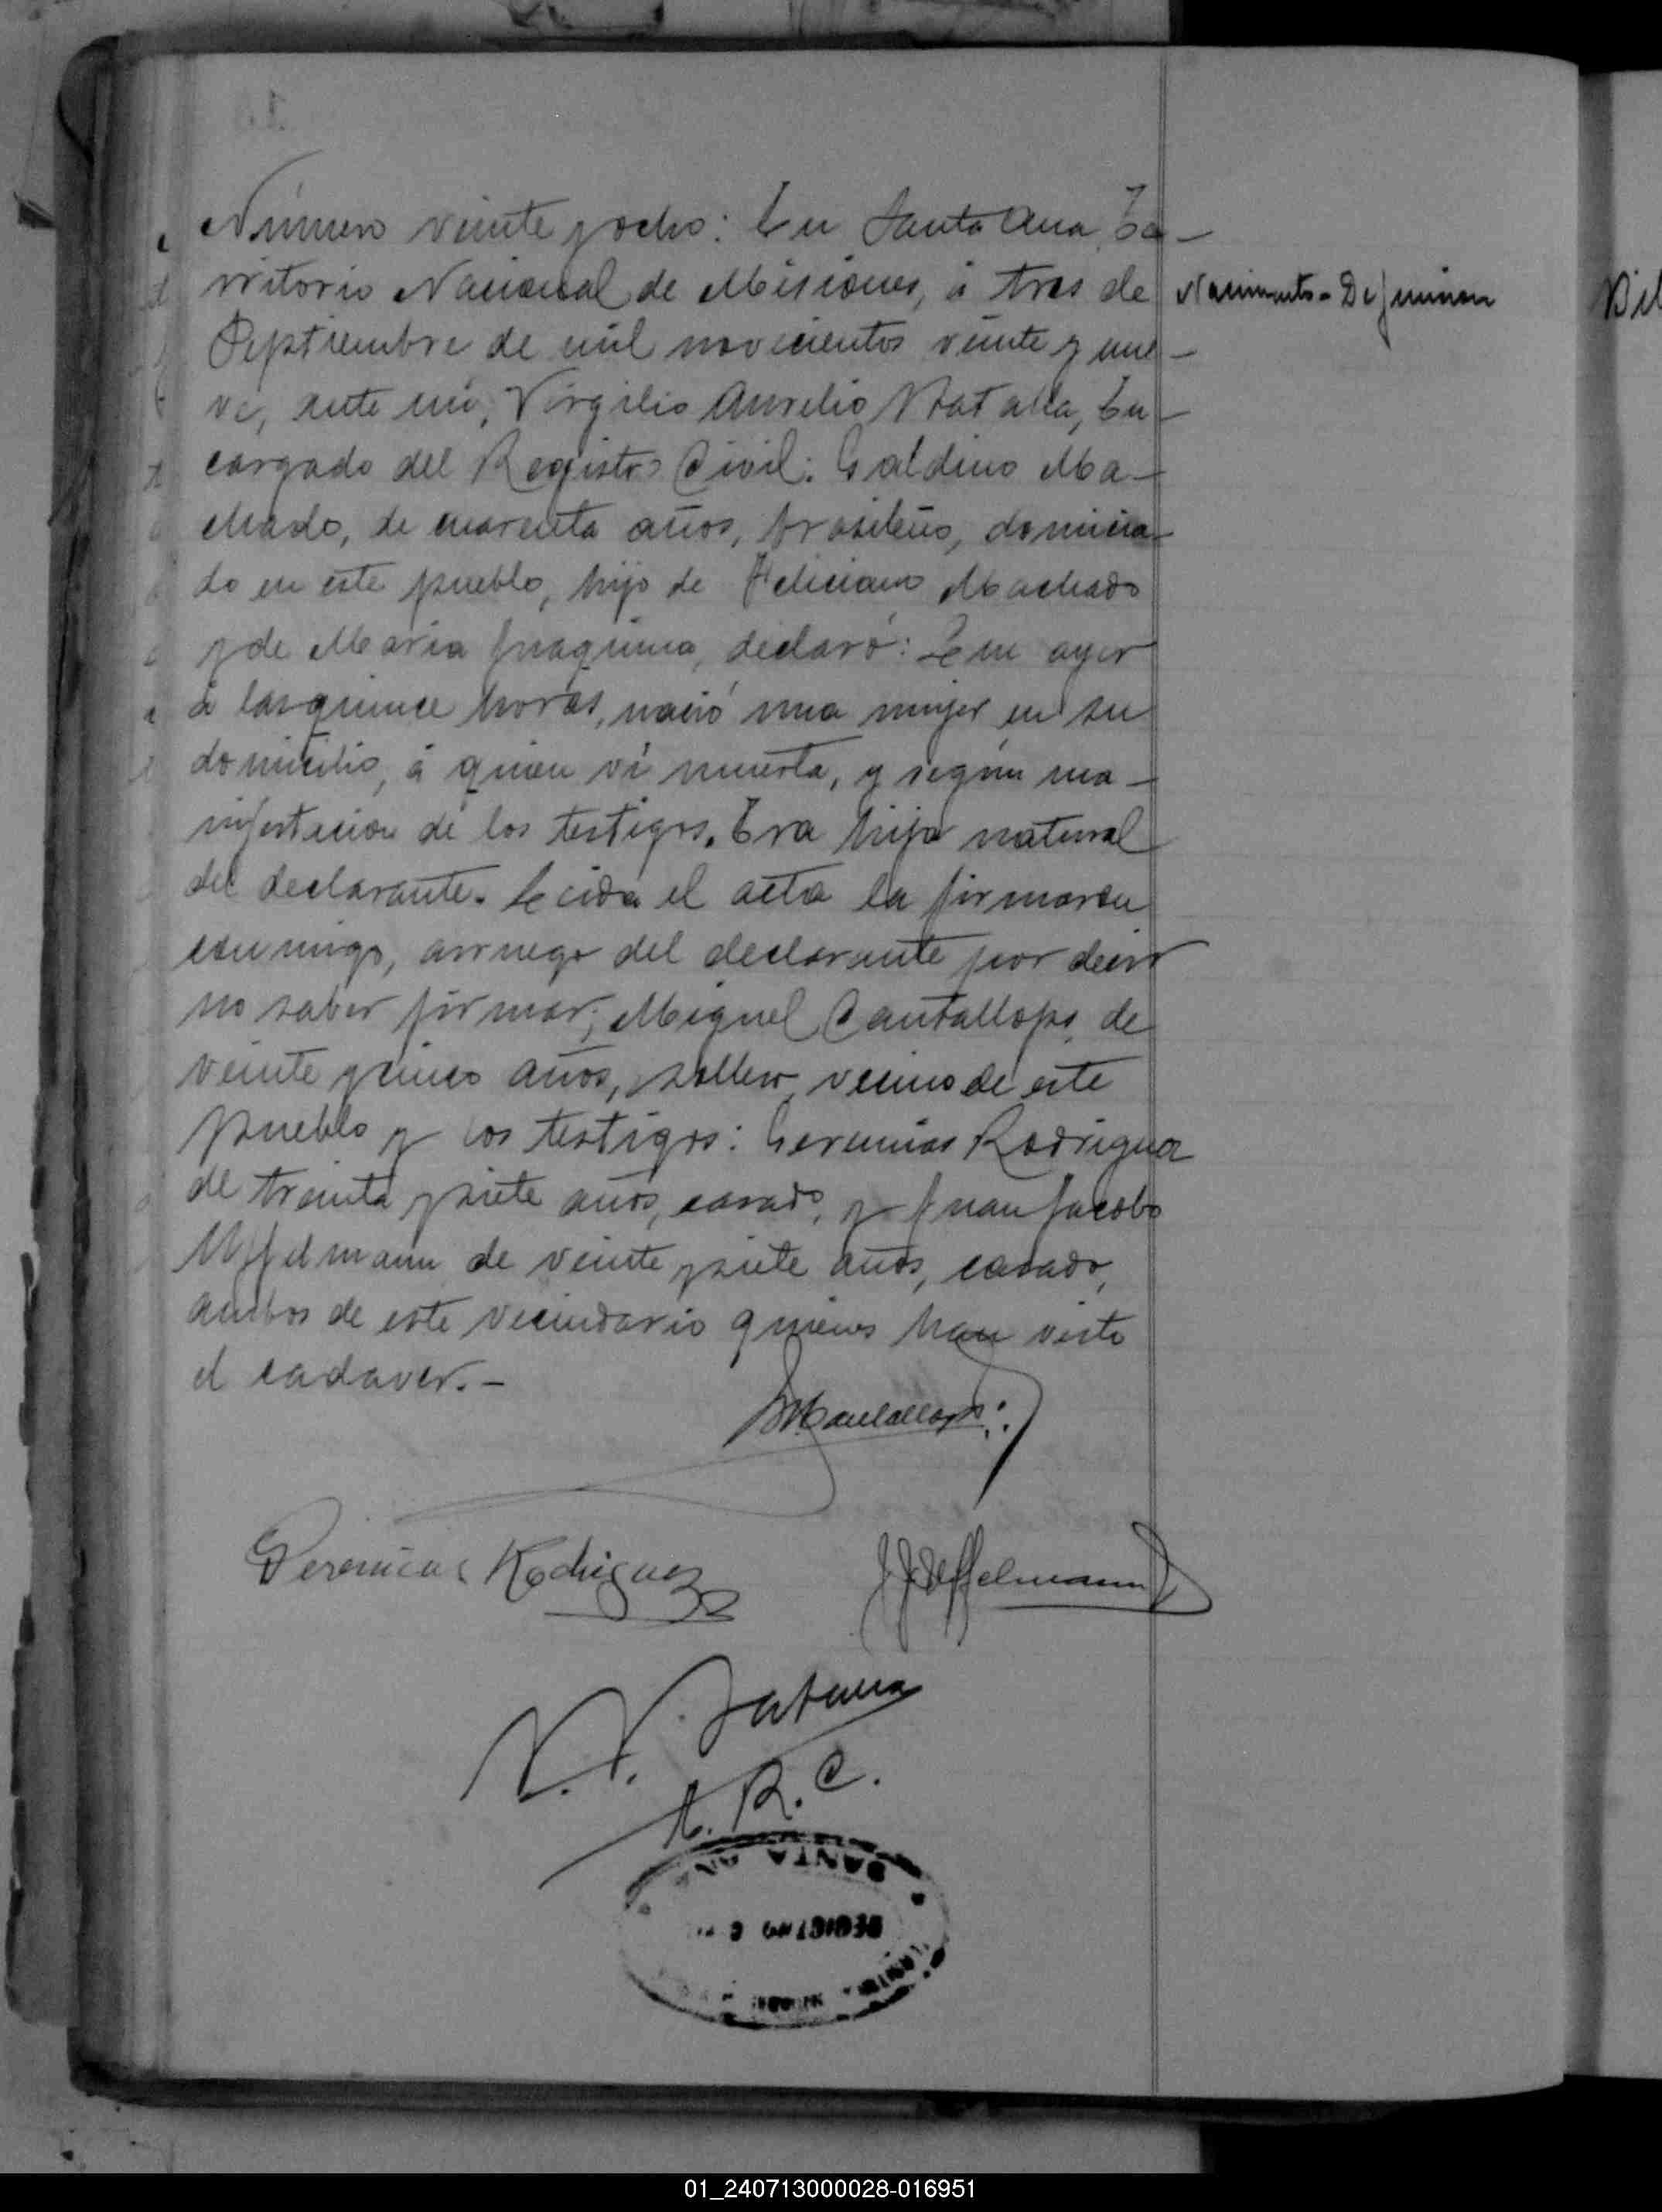 Número veinte y ocho: En Santa Ana, Te-
rritorio Nacional de Misiones, á tres de
Septiembre de mil novecientos veinte y nue-
ve, ante mi, Virgilio Aurelio
cargado del Registro Civil: Galdino Ma-
chado, de cuarenta años, brasileño, domicia-
do en este pueblo, hijo de Feliciano Machado
y de Maria Juaquina, declaró: Que ayer
á las quince horas, nació una mujer en su
domicilio, á quien ví muerta, y según ma-
nifestación de los testigos. Era hija natural
del declarante. Leida el acta la firmaron
conmigo, arruego del declarante por decir
no saber firmar; Miguel Cantallops, de
veinte y cinco años, soltero, vecino de este
pueblo y los testigos: Geremias Rodriguez
de treinta y siete años, casado, y Juan Jacobo
Uffelmann de veinte y siete años, casado,
ambos de este vecindario quienes han visto
el cadaver.-
Nacimiento - Defuncion
MCantallops
Geremias Rodriguez
J J Uffelmann
E. R. C.
SANTA ANA
REGISTRO C
01_240713000028-016951